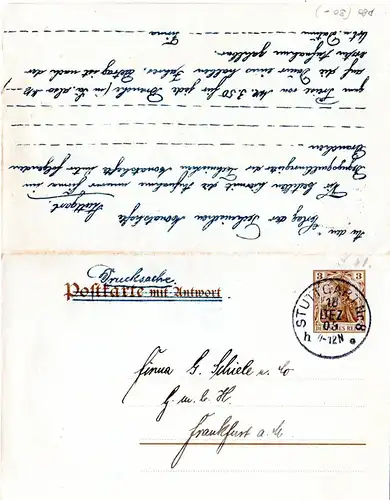 An den Verlag der Technischen Monatshefte
Stuttgart.
Wir bestellen hiermit die Aufnahme unserer Firma im
Bezugsquellenregister der Technischen Monatshefte unter folgenden
Branchen
zum Preise von Mk 3.50 für jede Branche (in Sa. also Mk —)
auf die Dauer eines halben Jahres. Betrag ist nach der
ersten Aufnahme zahlbar.
Ort & Datum Firma
Drucksache
Postkarte mit Antwort
3 3
STUTTGART Nr. 8
18
DEZ
03
11-12N
Firma G. Schiele u. Co
G. m. b. H.
Frankfurt a. M.